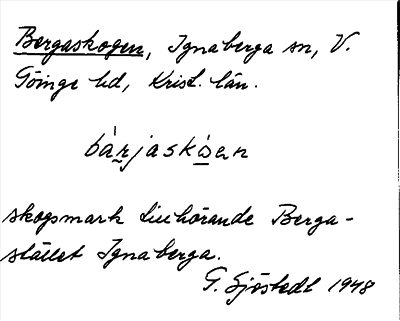 Bergaskogen, Ignaberga sn, V.
Göinge hd, Krist. län.
bàrjaskò̱en
skogsmark tillhörande Berga-
stället Ignaberga.
G. Sjöstedt 1948